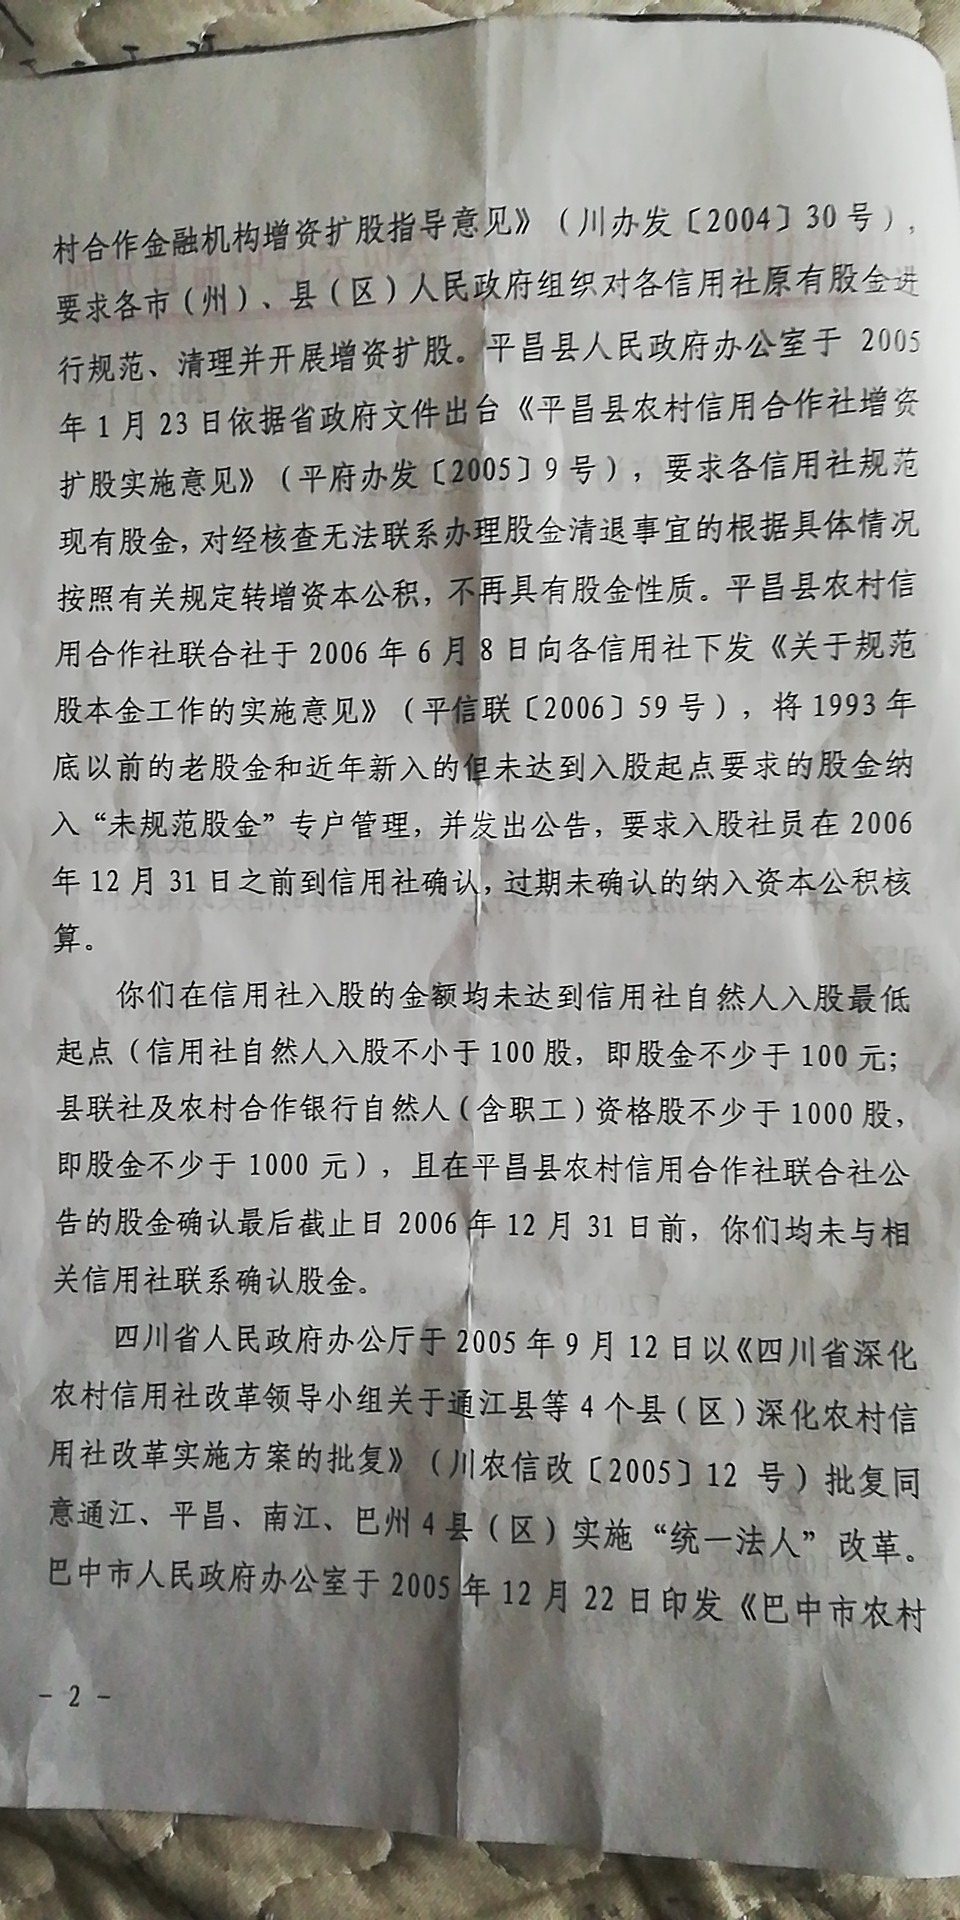 村合作金融机构增资扩股指导意见》（川办发〔2004〕30号），
要求各市（州）、县（区）人民政府组织对各信用社原有股金进
行规范、清理并开展增资扩股。平昌县人民政府办公室于 2005
年1月23日依据省政府文件出台《平昌县农村信用合作社增资
扩股实施意见》（平府办发〔2005〕9号），要求各信用社规范
现有股金，对经核查无法联系办理股金清退事宜的根据具体情况
按照有关规定转增资本公积，不再具有股金性质。平昌县农村信
用合作社联合社于2006年6月8日向各信用社下发《关于规范
股本金工作的实施意见》（平信联〔2006〕59号），将1993年
底以前的老股金和近年新入的但未达到入股起点要求的股金纳
入“未规范股金”专户管理，并发出公告，要求入股社员在2006
年12月31日之前到信用社确认，过期未确认的纳入资本公积核
算。
你们在信用社入股的金额均未达到信用社自然人入股最低
起点（信用社自然人入股不小于100股，即股金不少于100元；
县联社及农村合作银行自然人（含职工）资格股不少于1000股，
即股金不少于1000元），且在平昌县农村信用合作社联合社公
告的股金确认最后截止日2006年12月31日前，你们均未与相
关信用社联系确认股金。
四川省人民政府办公厅于2005年9月12日以《四川省深化
农村信用社改革领导小组关于通江县等4个县（区）深化农村信
用社改革实施方案的批复》（川农信改〔2005〕12 号）批复同
意通江、平昌、南江、巴州4县（区）实施“统一法人”改革。
巴中市人民政府办公室于2005年12月22日印发《巴中市农村
- 2 -